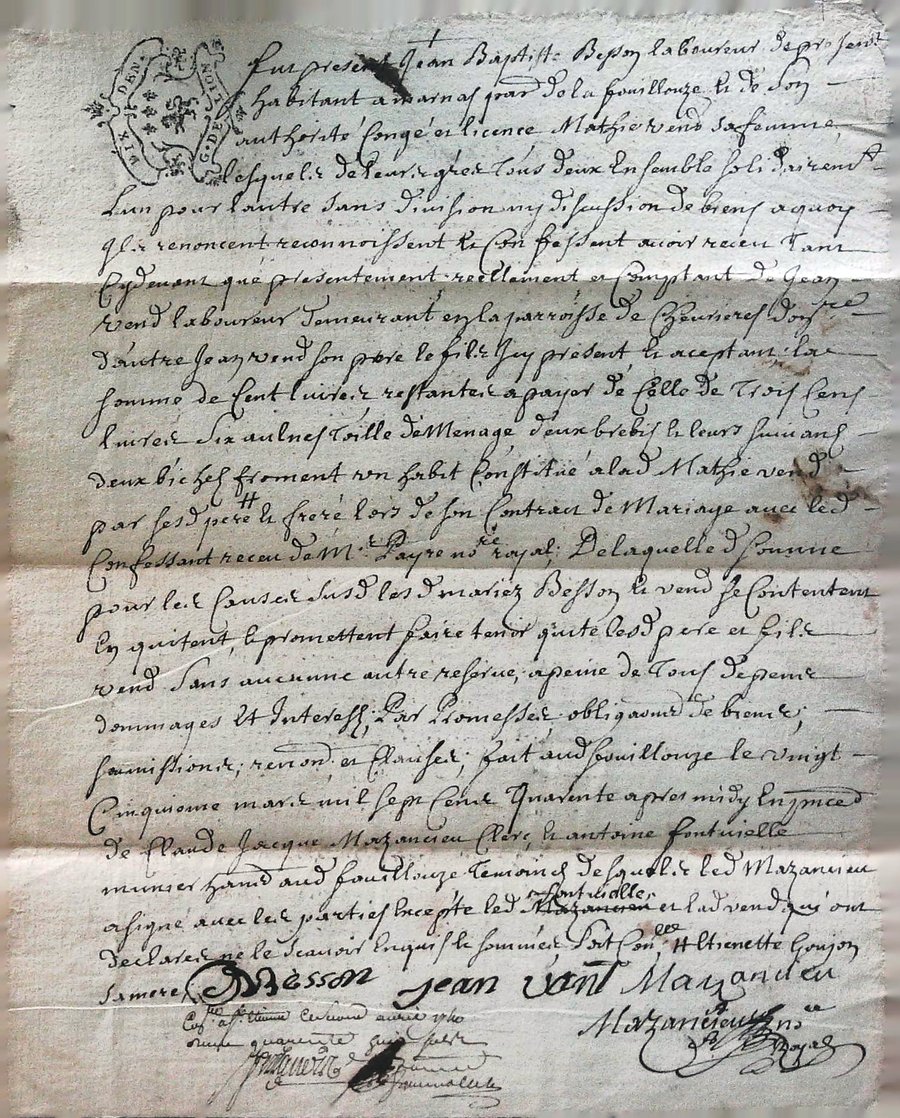 SIX DEN.
G. DE LION
fut present Jean Baptiste Besson laboureur de present
habitant a marnas parr de la fouillouze et de Son
authorité Congé et licence Mathie vend sa femme,
lesquels de leurs grés Tous deux Ensemble solidairemt
Lun pour lautre Sans division ny discussion de biens a quoy
ils renoncent reconnoissent et Confessent avoir receu Tant
Cydevant que presentement reellement et Comptant de Jean
vend laboureur Demeurant en la parroisse de Chevrieres
d'autre Jean vend son pere le fils Icy present et aceptant la
somme de Cent livres restantes a payer de Celle de Trois Cens
livres Six aulnes Toille de Menage deux brebis et leurs suivans
deux bichets froment un habit Constitué a lad Mathie vend
par sesd pere H et frere lors de son Contract de Mariage avec led
Confessant receu de Mr Payre nore royal; De laquelle d somme
pour les Causes susd lesd mariez Besson et vend se Contentent
En quitent, et promettent faire tenir quite lesd pere et fils
vend Sans aucunne autre reserve, a peine de Tous depens
dommages Et Interest; Par Promesses; obligaons de biens;
soumissions; renond et Clauses; fait aud fouillouze le vingt
Cinquieme mars mil sept Cens Quarente apres midy En pnced
de Claude Jacque Mazancieu Clerc, et antoine fontvielle
munier aud fouillouze Temoins desquels led Mazancieu
a signé avec les parties Excepté led Mazancieu fontvielle et lad vend qui ont
declarés ne le Scavoir Enquis et sommés H Etienette Goujon
sa mere Besson jean vant Mazancieu
Mazancieu nore
Royal